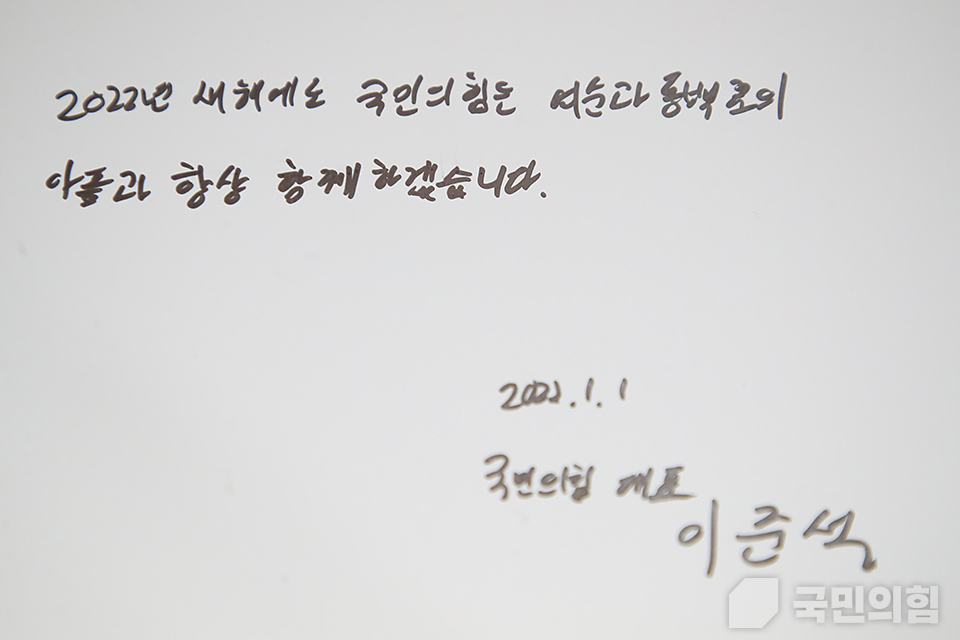 2022년 새해에도 국민의힘은 여순과 동백호의
아픔과 항상 함께하겠습니다.
2022.1.1
국민의힘 대표
이준석
국민의힘